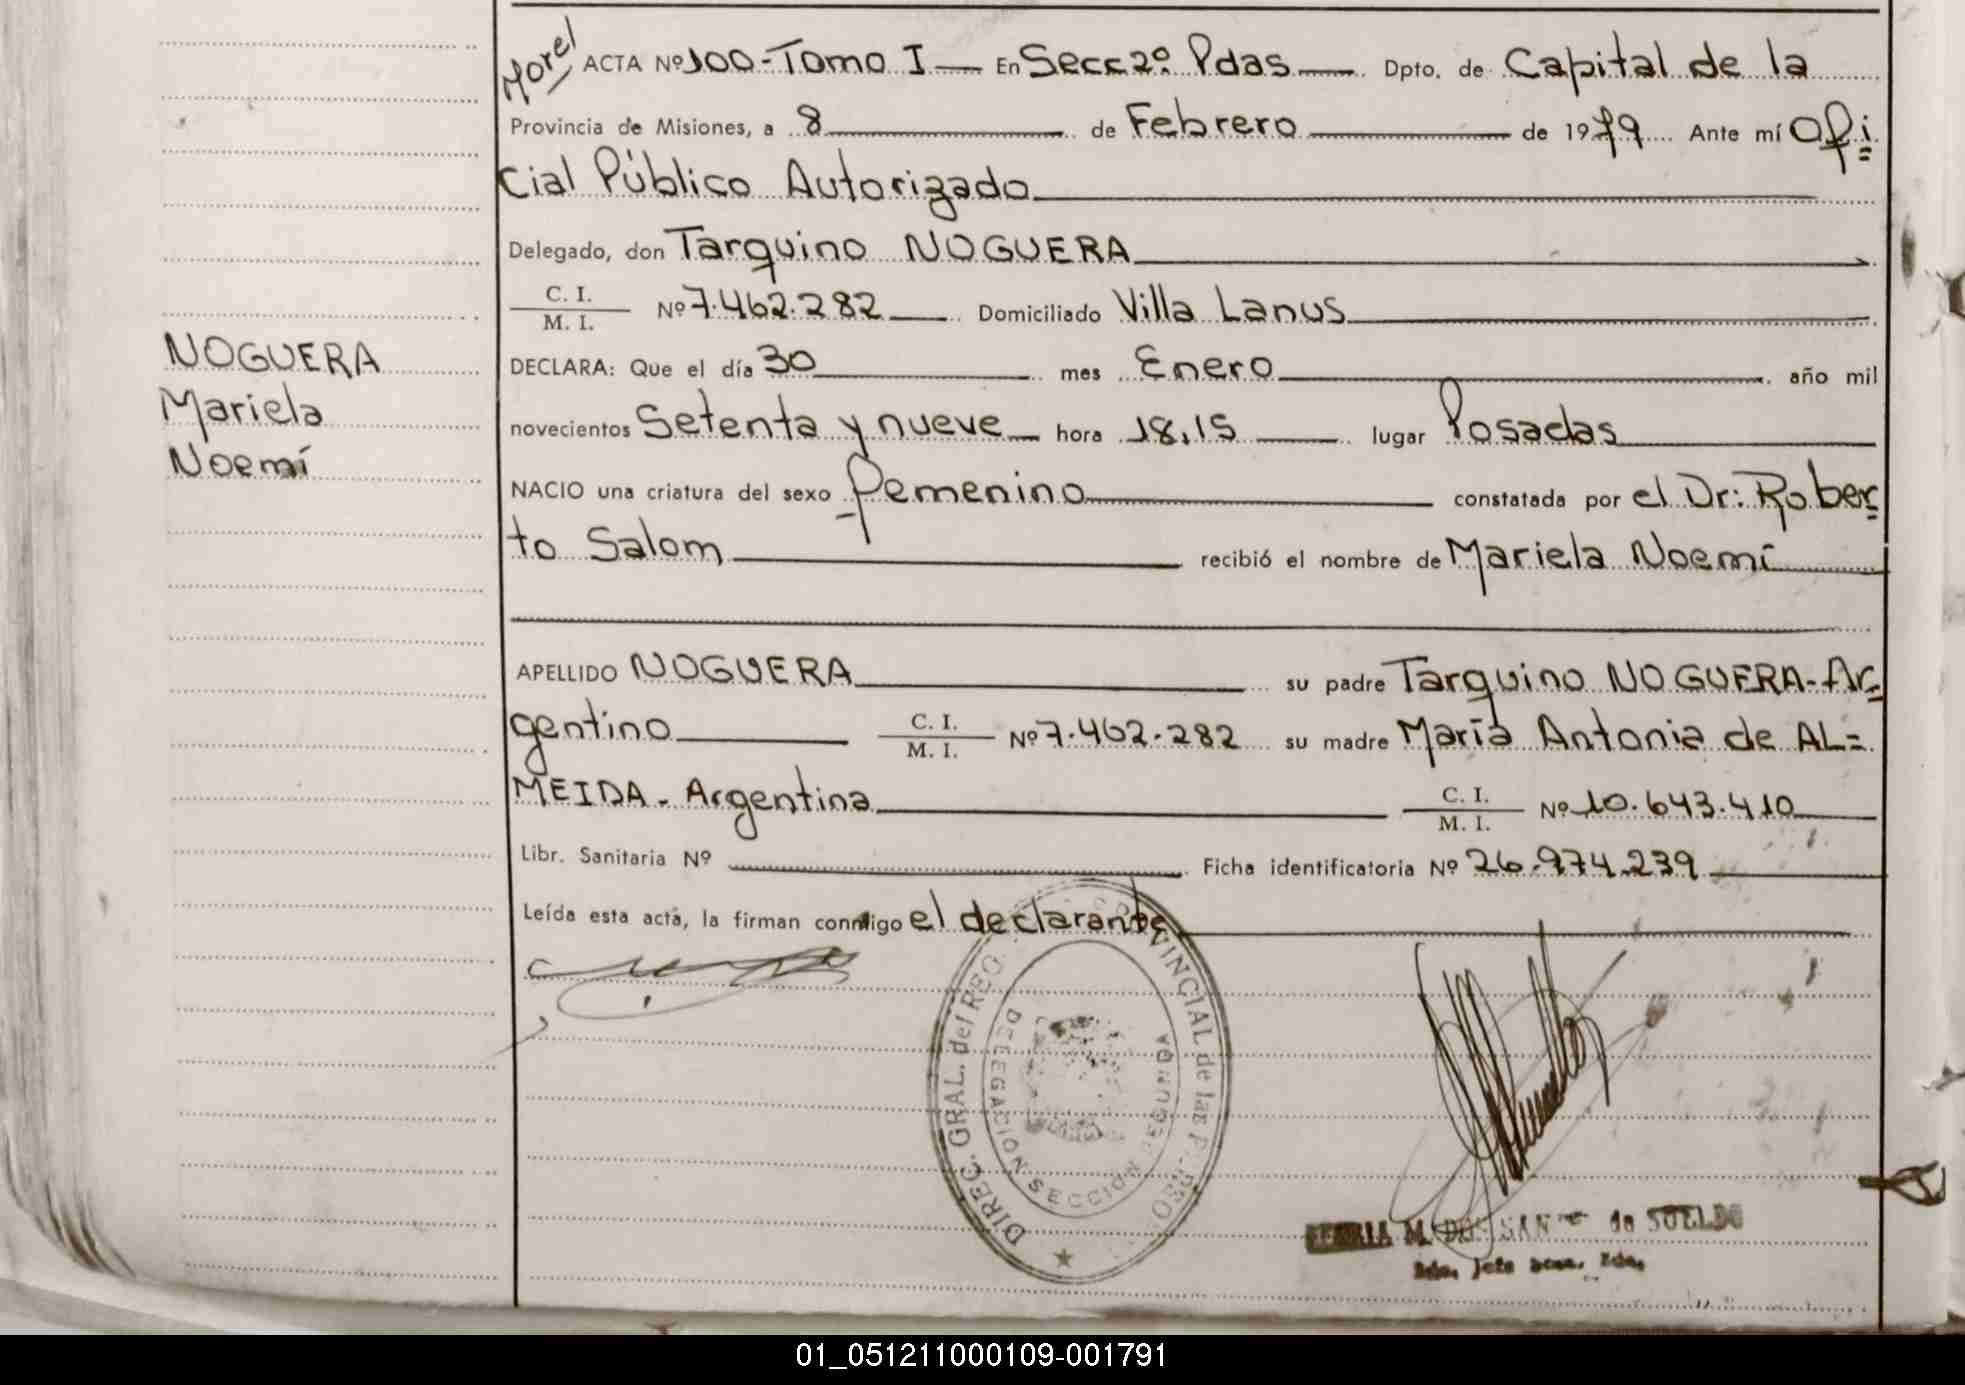 Morel
ACTA Nº 100-Tomo I — En Secc 2º Pdas — Dpto. de Capital de la
Provincia de Misiones, a 8 — de Febrero — de 1979 Ante mí Ofi=
cial Público Autorizado
Delegado, don Tarquino NOGUERA
C. I.
M. I.
Nº 7.462.282 — Domiciliado Villa Lanus
NOGUERA
Mariela
Noemí
DECLARA: Que el día 30 — mes Enero — año mil
novecientos Setenta y nueve — hora 18,15 — lugar Posadas
NACIO una criatura del sexo femenino — constatada por el Dr: Rober=
to Salom — recibió el nombre de Mariela Noemí
APELLIDO NOGUERA — su padre Tarquino NOGUERA-Ar=
gentino — C. I. / M. I. Nº 7.462.282 su madre María Antonia de AL=
MEIDA - Argentina — C. I. / M. I. Nº 10.643.410
Libr. Sanitaria Nº Ficha identificatoria Nº 26.974.239
Leída esta acta, la firman conmigo el declarante
DIREC. GRAL. del REG. PROVINCIAL de las PERSO
DELEGACION SECCION SEGUNDA
M. DOS SANT de SUELDO
Jefe
01_051211000109-001791